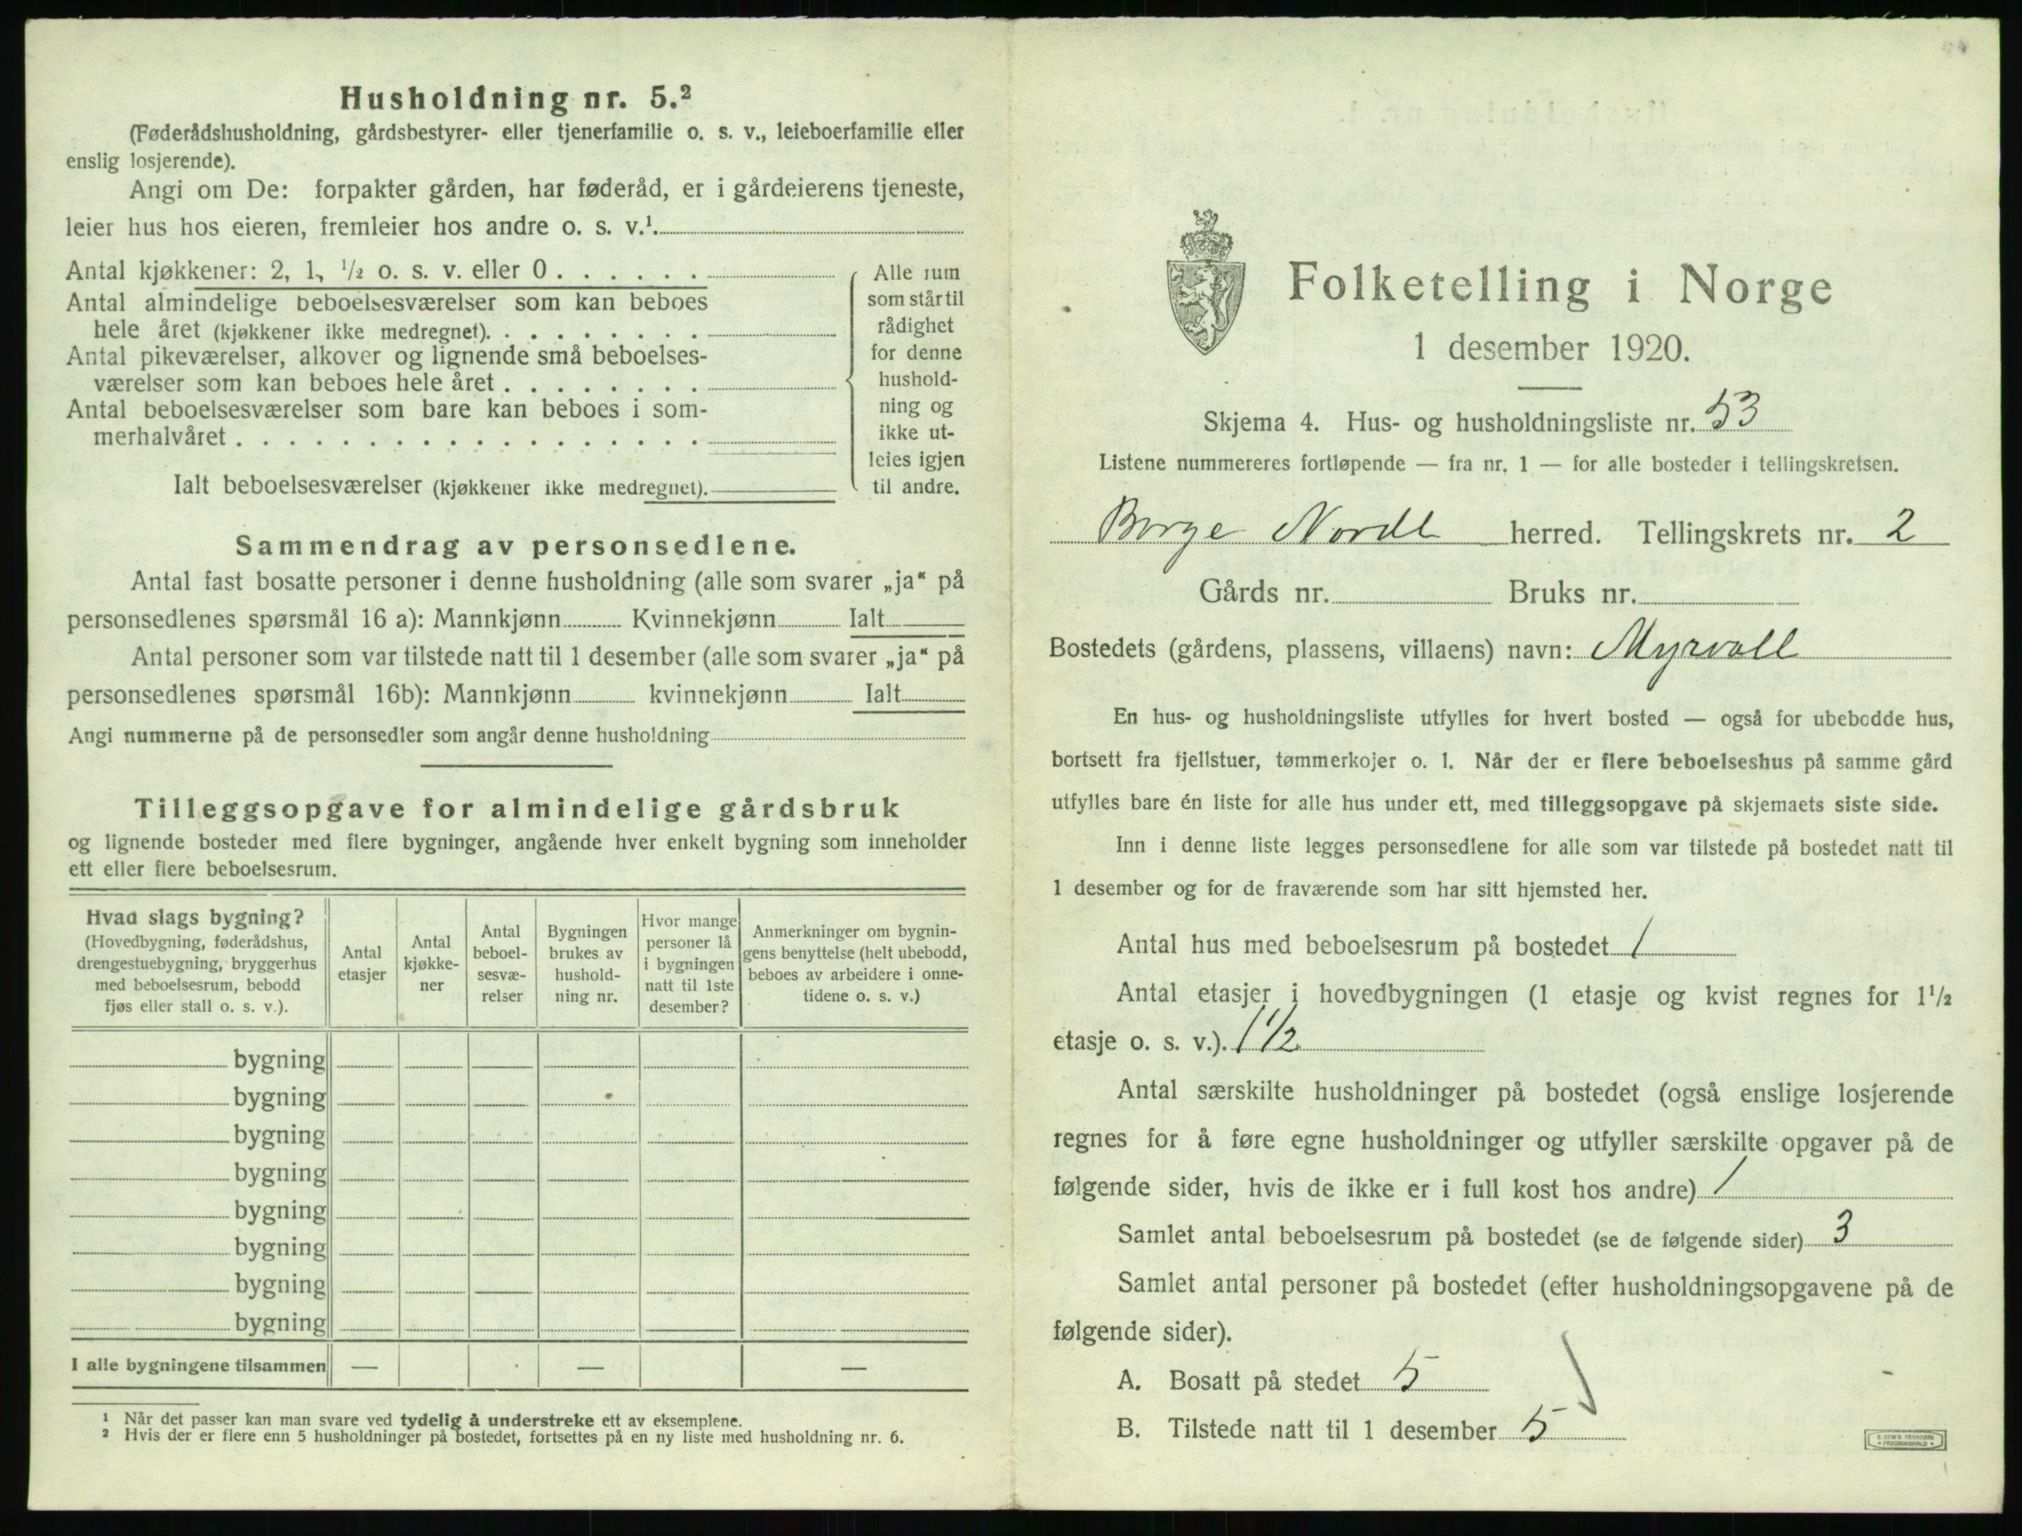 Husholdning nr. 5.²
(Føderådshusholdning, gårdsbestyrer- eller tjenerfamilie o. s. v., leieboerfamilie eller
enslig losjerende).
Angi om De: forpakter gården, har føderåd, er i gårdeierens tjeneste,
leier hus hos eieren, fremleier hos andre o. s. v.¹.
Antal kjøkkener: 2, 1, ½ o. s. v. eller 0 . . . . . .
Antal almindelige beboelsesværelser som kan beboes
hele året (kjøkkener ikke medregnet). . . . . . . . .
Antal pikeværelser, alkover og lignende små beboelses-
værelser som kan beboes hele året . . . . . . . .
Antal beboelsesværelser som bare kan beboes i som-
merhalvåret . . . . . . . . . . . . . . . . . .
Ialt beboelsesværelser (kjøkkener ikke medregnet).
Alle rum
som står til
rådighet
for denne
hushold-
ning og
ikke ut-
leies igjen
til andre.
Sammendrag av personsedlene.
Antal fast bosatte personer i denne husholdning (alle som svarer „ja“ på
personsedlenes spørsmål 16 a): Mannkjønn Kvinnekjønn Ialt
Antal personer som var tilstede natt til 1 desember (alle som svarer „ja“ på
personsedlenes spørsmål 16b): Mannkjønn kvinnekjønn Ialt
Angi nummerne på de personsedler som angår denne husholdning
Tilleggsopgave for almindelige gårdsbruk
og lignende bosteder med flere bygninger, angående hver enkelt bygning som inneholder
ett eller flere beboelsesrum.
Hvad slags bygning?
(Hovedbygning, føderådshus,
drengestuebygning, bryggerhus
med beboelsesrum, bebodd
fjøs eller stall o. s. v.).
Antal
etasjer
Antal
kjøkke-
ner
Antal
beboel-
sesvæ-
relser
Bygningen
brukes av
hushold-
ning nr.
Hvor mange
personer lå
i bygningen
natt til 1ste
desember?
Anmerkninger om bygnin-
gens benyttelse (helt ubebodd,
beboes av arbeidere i onne-
tidene o. s. v.)
bygning
bygning
bygning
bygning
bygning
bygning
bygning
bygning
I alle bygningene tilsammen — — —
¹ Når det passer kan man svare ved tydelig å understreke ett av eksemplene.
² Hvis der er flere enn 5 husholdninger på bostedet, fortsettes på en ny liste med husholdning nr. 6.
Folketelling i Norge
1 desember 1920.
Skjema 4. Hus- og husholdningsliste nr. 53
Listene nummereres fortløpende — fra nr. 1 — for alle bosteder i tellingskretsen.
Borge Nordl herred. Tellingskrets nr. 2
Gårds nr. Bruks nr.
Bostedets (gårdens, plassens, villaens) navn: Myrvoll
En hus- og husholdningsliste utfylles for hvert bosted — også for ubebodde hus,
bortsett fra fjellstuer, tømmerkojer o. l. Når der er flere beboelseshus på samme gård
utfylles bare én liste for alle hus under ett, med tilleggsopgave på skjemaets siste side.
Inn i denne liste legges personsedlene for alle som var tilstede på bostedet natt til
1 desember og for de fraværende som har sitt hjemsted her.
Antal hus med beboelsesrum på bostedet 1
Antal etasjer i hovedbygningen (1 etasje og kvist regnes for 1½
etasje o. s. v.). 1½
Antal særskilte husholdninger på bostedet (også enslige losjerende
regnes for å føre egne husholdninger og utfyller særskilte opgaver på de
følgende sider, hvis de ikke er i full kost hos andre) 1
Samlet antal beboelsesrum på bostedet (se de følgende sider) 3
Samlet antal personer på bostedet (efter husholdningsopgavene på de
følgende sider).
A. Bosatt på stedet 5
B. Tilstede natt til 1 desember 5